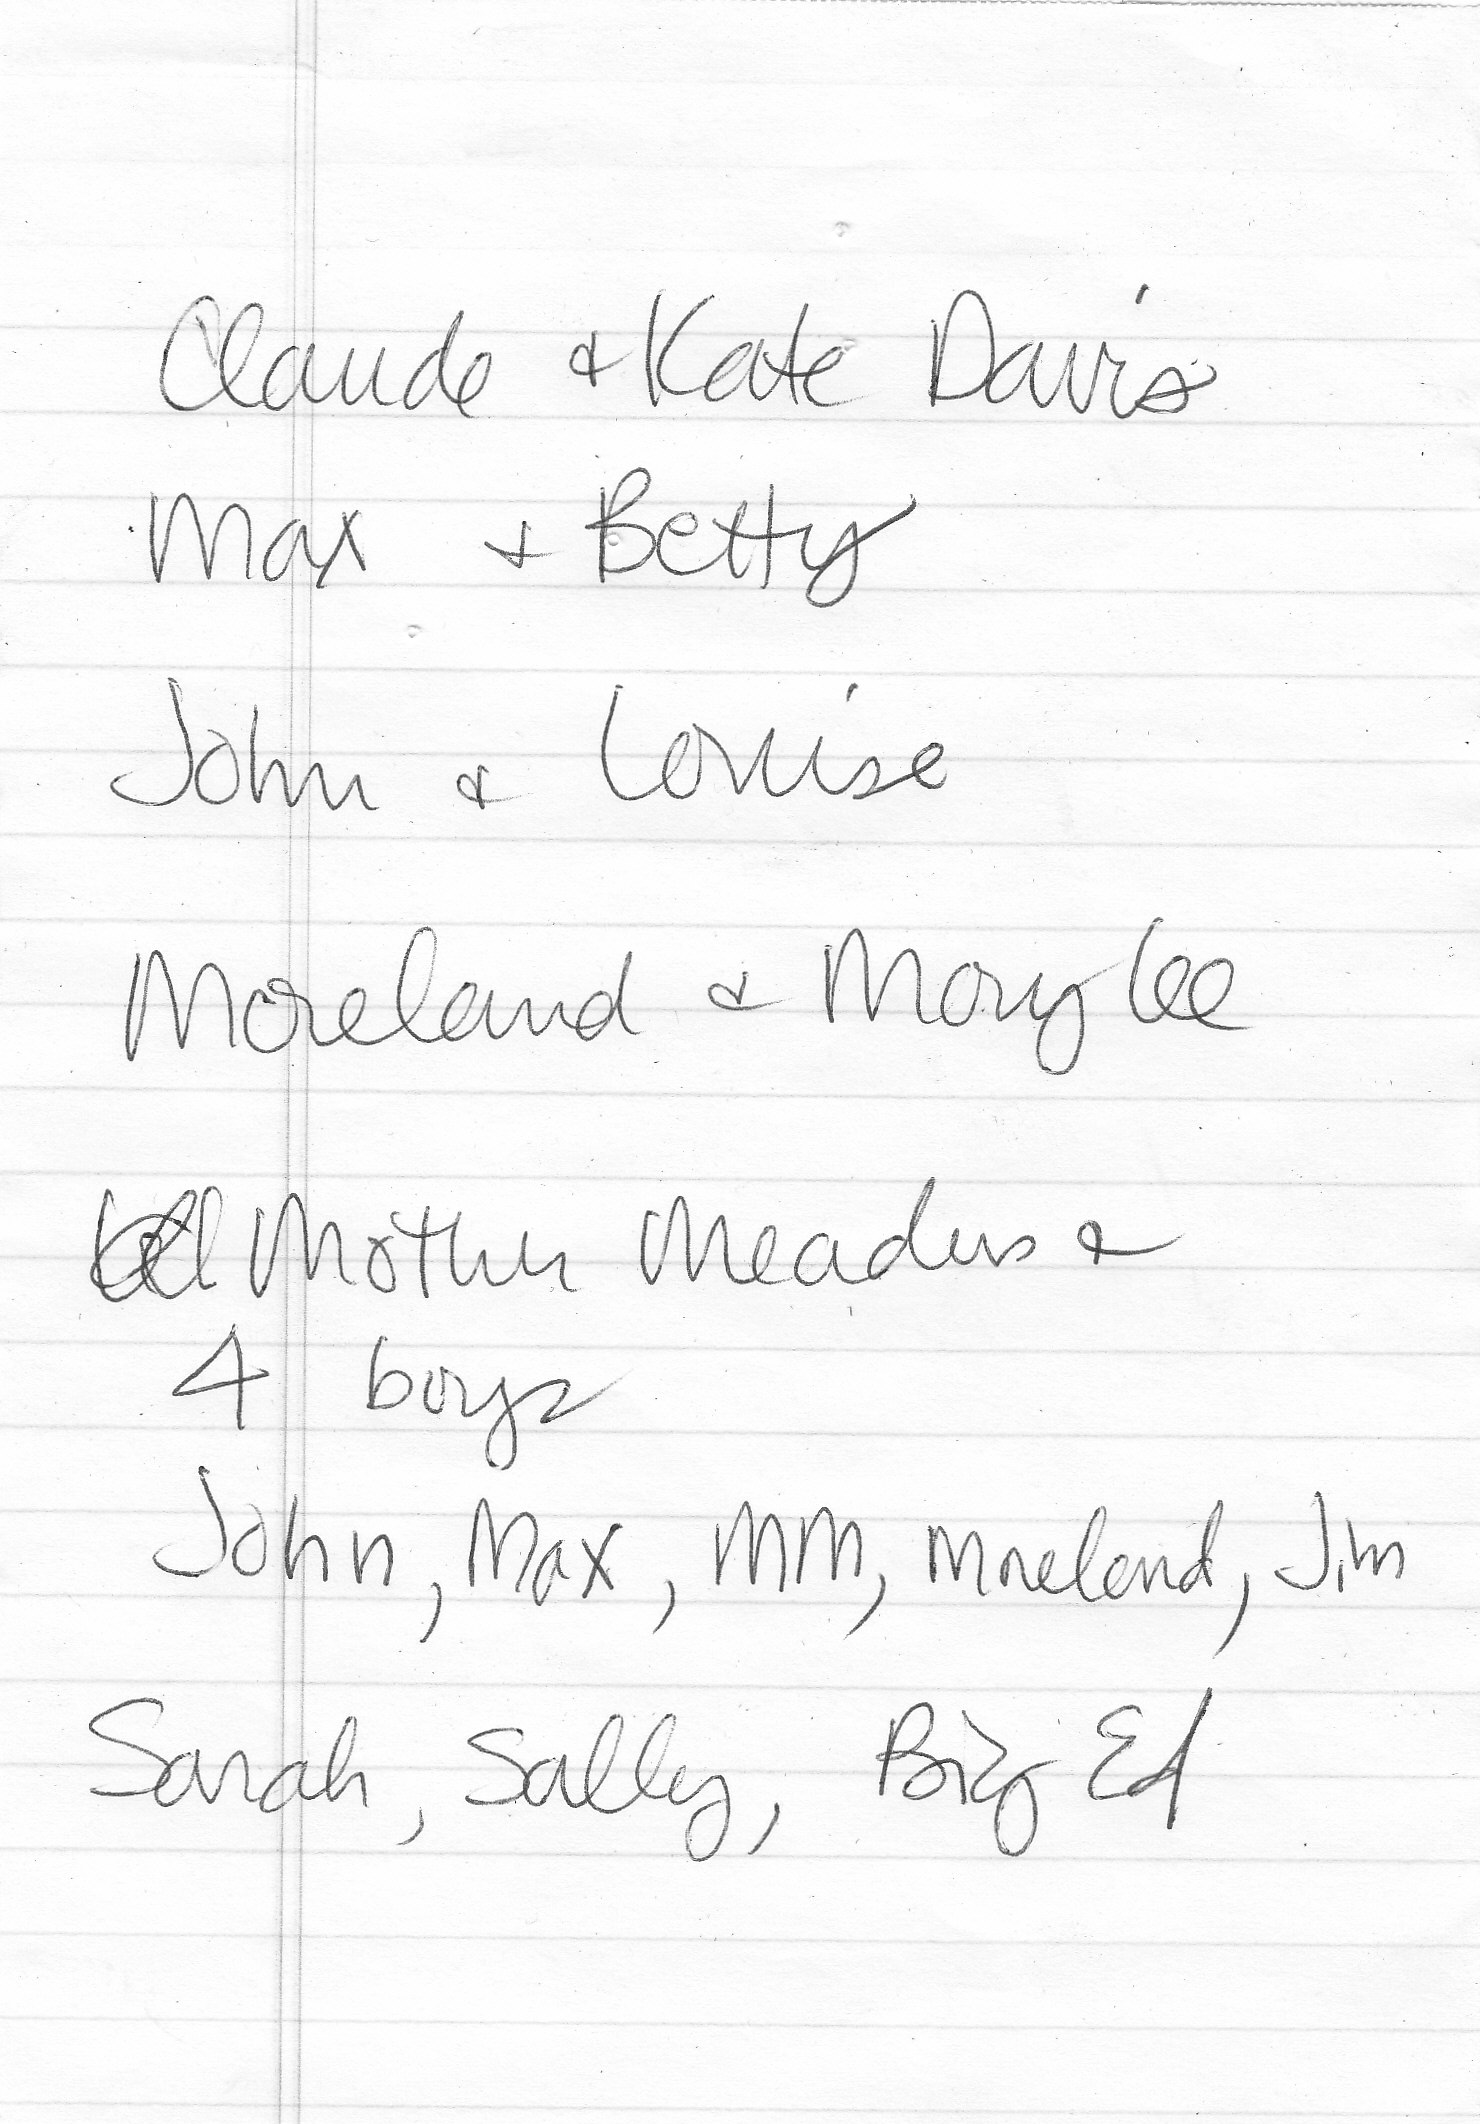 Claude & Kate Davis
Max & Betty
John & Louise
Moreland & Mary Lee
Mother Meaders &
4 boys
John, Max, MM, Moreland, Jim
Sarah, Sally, Big Ed